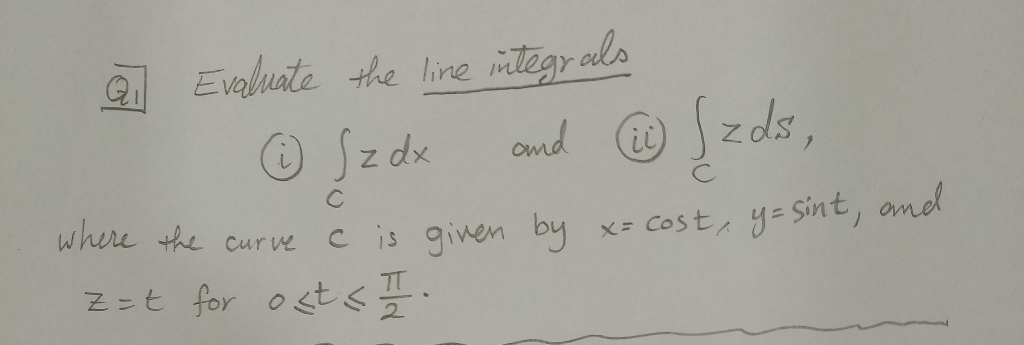 Q1 Evaluate the line integrals
(i) ∫_C z dx and (ii) ∫_C z ds,
where the curve C is given by x = cos t, y = sin t, and
z = t for 0 ≤ t ≤ π/2.